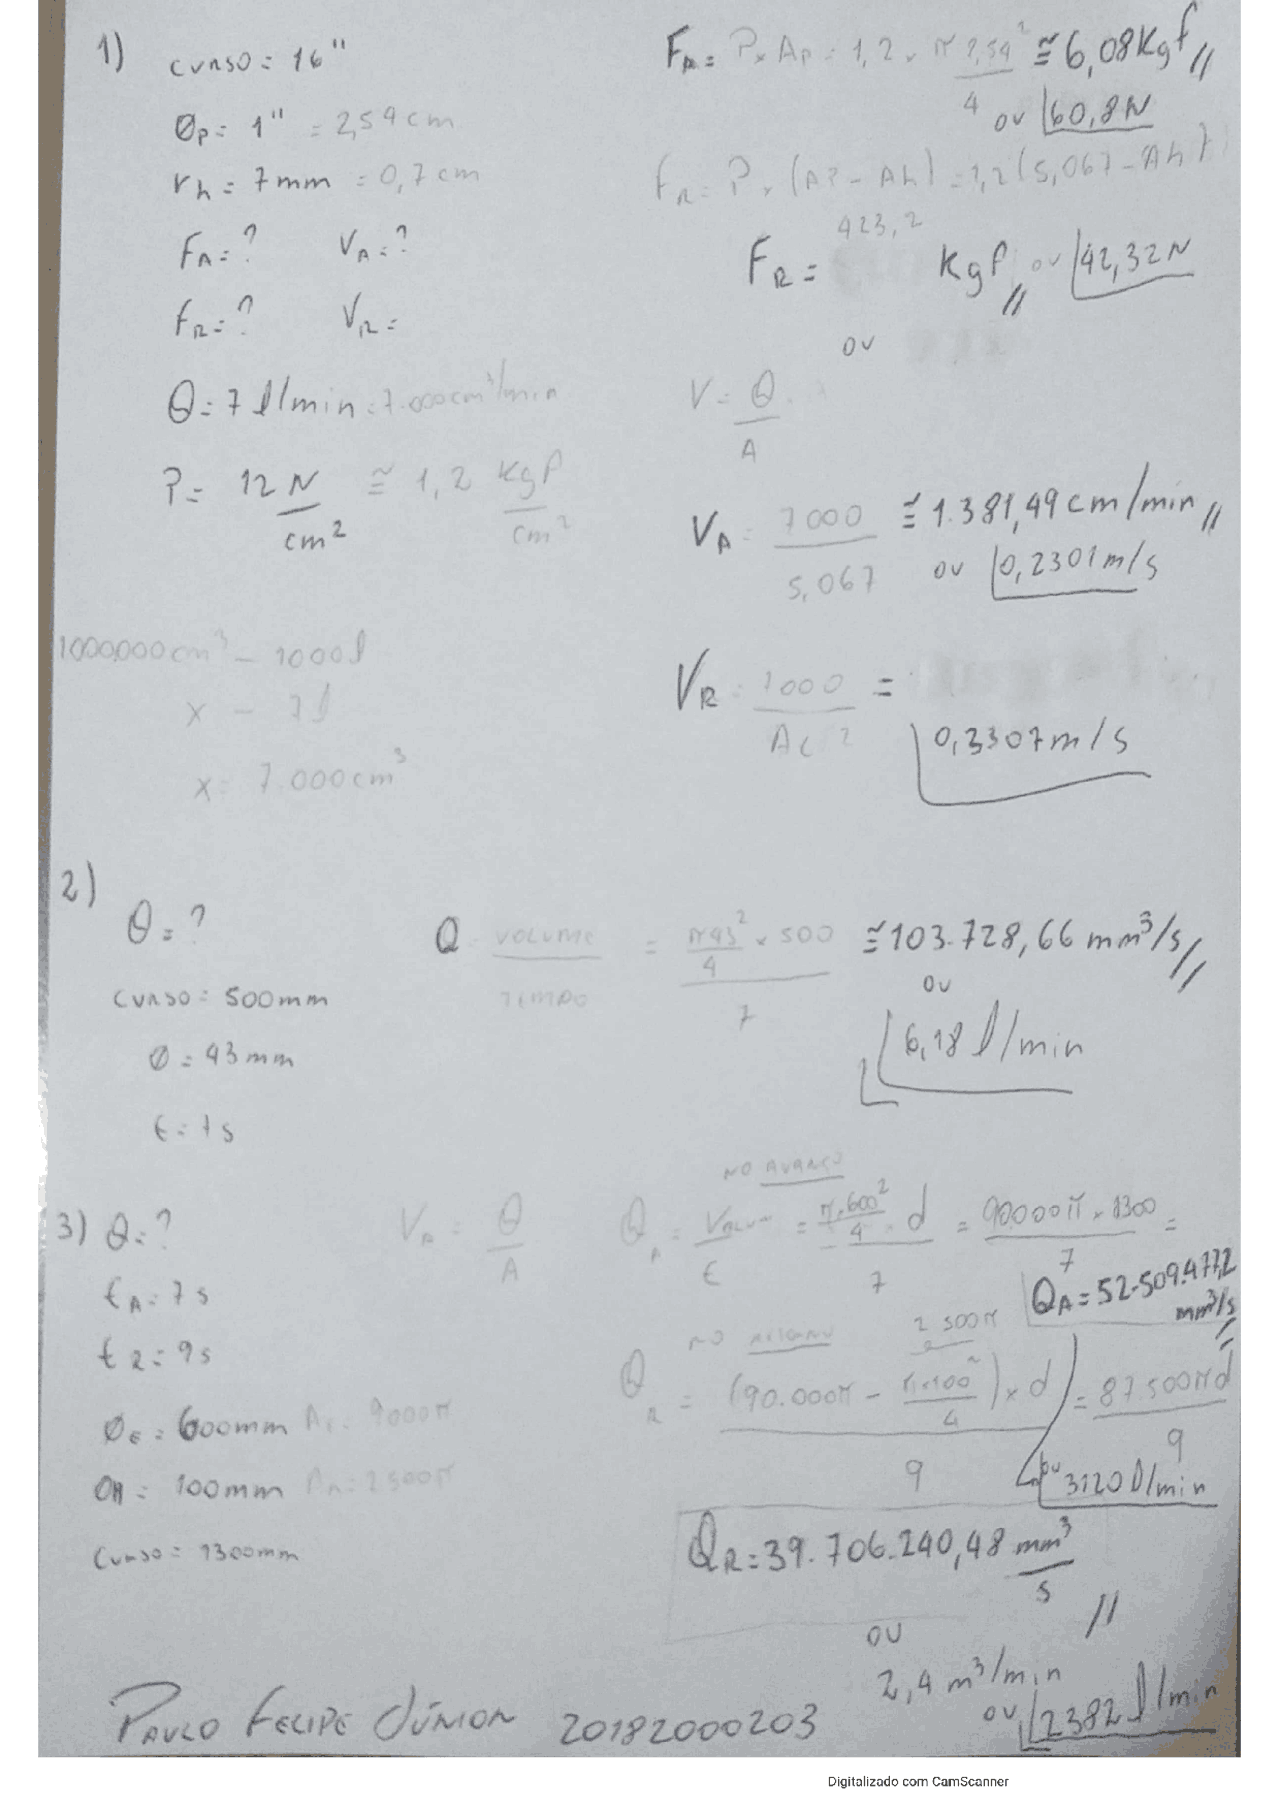 1)
curso = 16"
Øp = 1" = 2,54 cm
rh = 7mm = 0,7 cm
FA = ? VA = ?
FR = ? VR =
Q = 7 l/min = 7.000 cm³/min
P = 12 N/cm² ≅ 1,2 kgf/cm²
1000000 cm³ – 1000 l
x – 7 l
x = 7.000 cm³
FA = P x Ap = 1,2 x π 2,54²/4 ≅ 6,08 Kgf //
ou 60,8 N
FR = P x (AP – Ah) = 1,2 (5,067 – Ah)
423,2
FR = kgf // ou 42,32 N
ou
V = Q/A
VA = 7000/5,067 ≅ 1.381,49 cm/min //
ou 0,2301 m/s
VR = 1000/Ac ? =
0,3307 m/s
2)
Q = ?
curso = 500 mm
Ø = 43 mm
t = 7 s
Q VOLUME/TEMPO = (π43²/4 x 500)/7 ≅ 103.728,66 mm³/s //
ou
6,18 l/min
3) Q = ?
tA = 7 s
tR = 9 s
ØE = 600mm = 9000π
ØH = 100mm = 2500π
Curso = 1300mm
VA = Q/A
NO AVANÇO
QA = /t = (π.600²/4 . d)/7 = (90.000π x 1300)/7 =
QA = 52.509.477,2 mm³/s //
ou 3120 l/min
NO
2 500π
QR = ((90.000π – π.100²/4) x d)/9 = 87 500πd/9
QR = 39.706.240,48 mm³/s //
ou
2,4 m³/min
ou 2382 l/min
PAULO FELIPE JÚNIOR 20182000203
Digitalizado com CamScanner